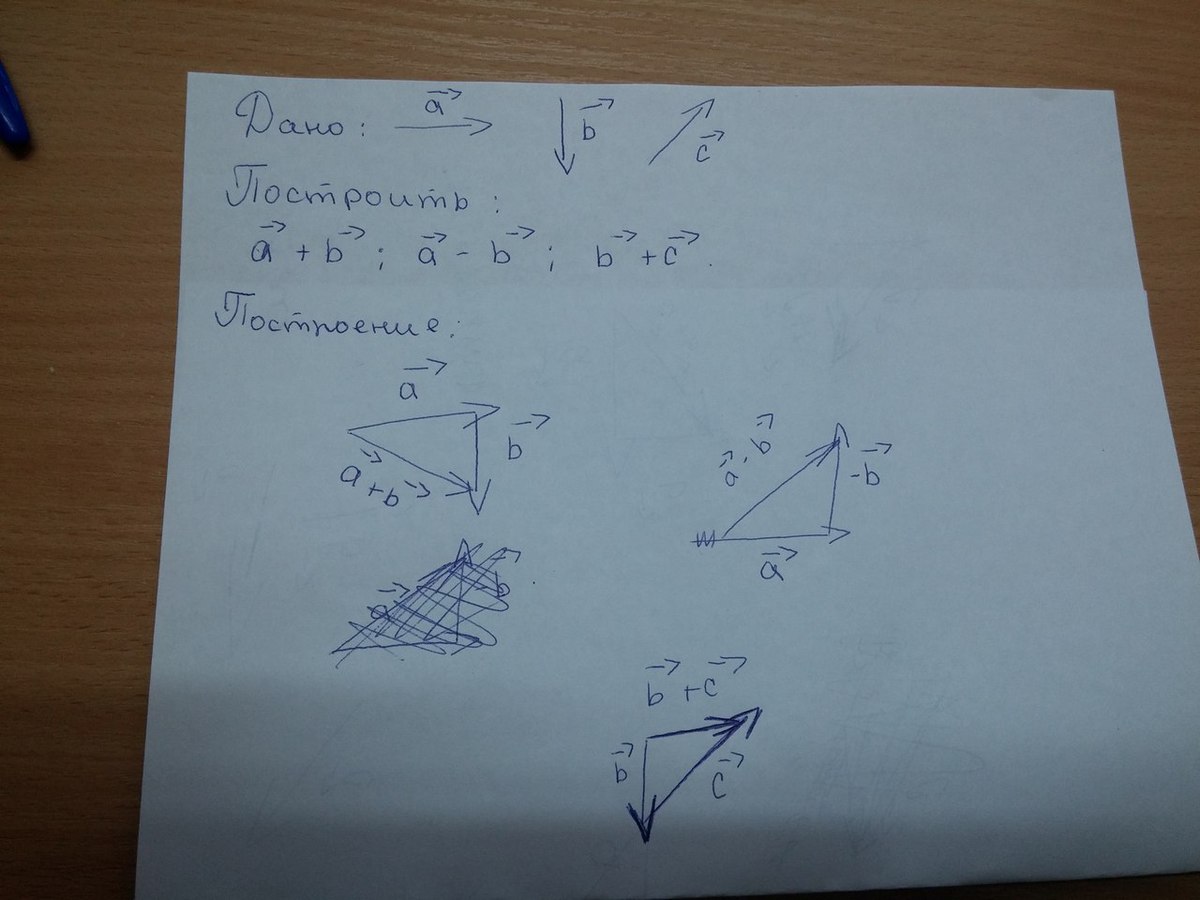 Дано: a⃗ b⃗ c⃗
Построить:
a⃗ + b⃗ ; a⃗ - b⃗ ; b⃗ + c⃗.
Построение:
a⃗
b⃗
a⃗ + b⃗
a⃗ - b⃗
-b⃗
a⃗
b⃗ + c⃗
b⃗
c⃗